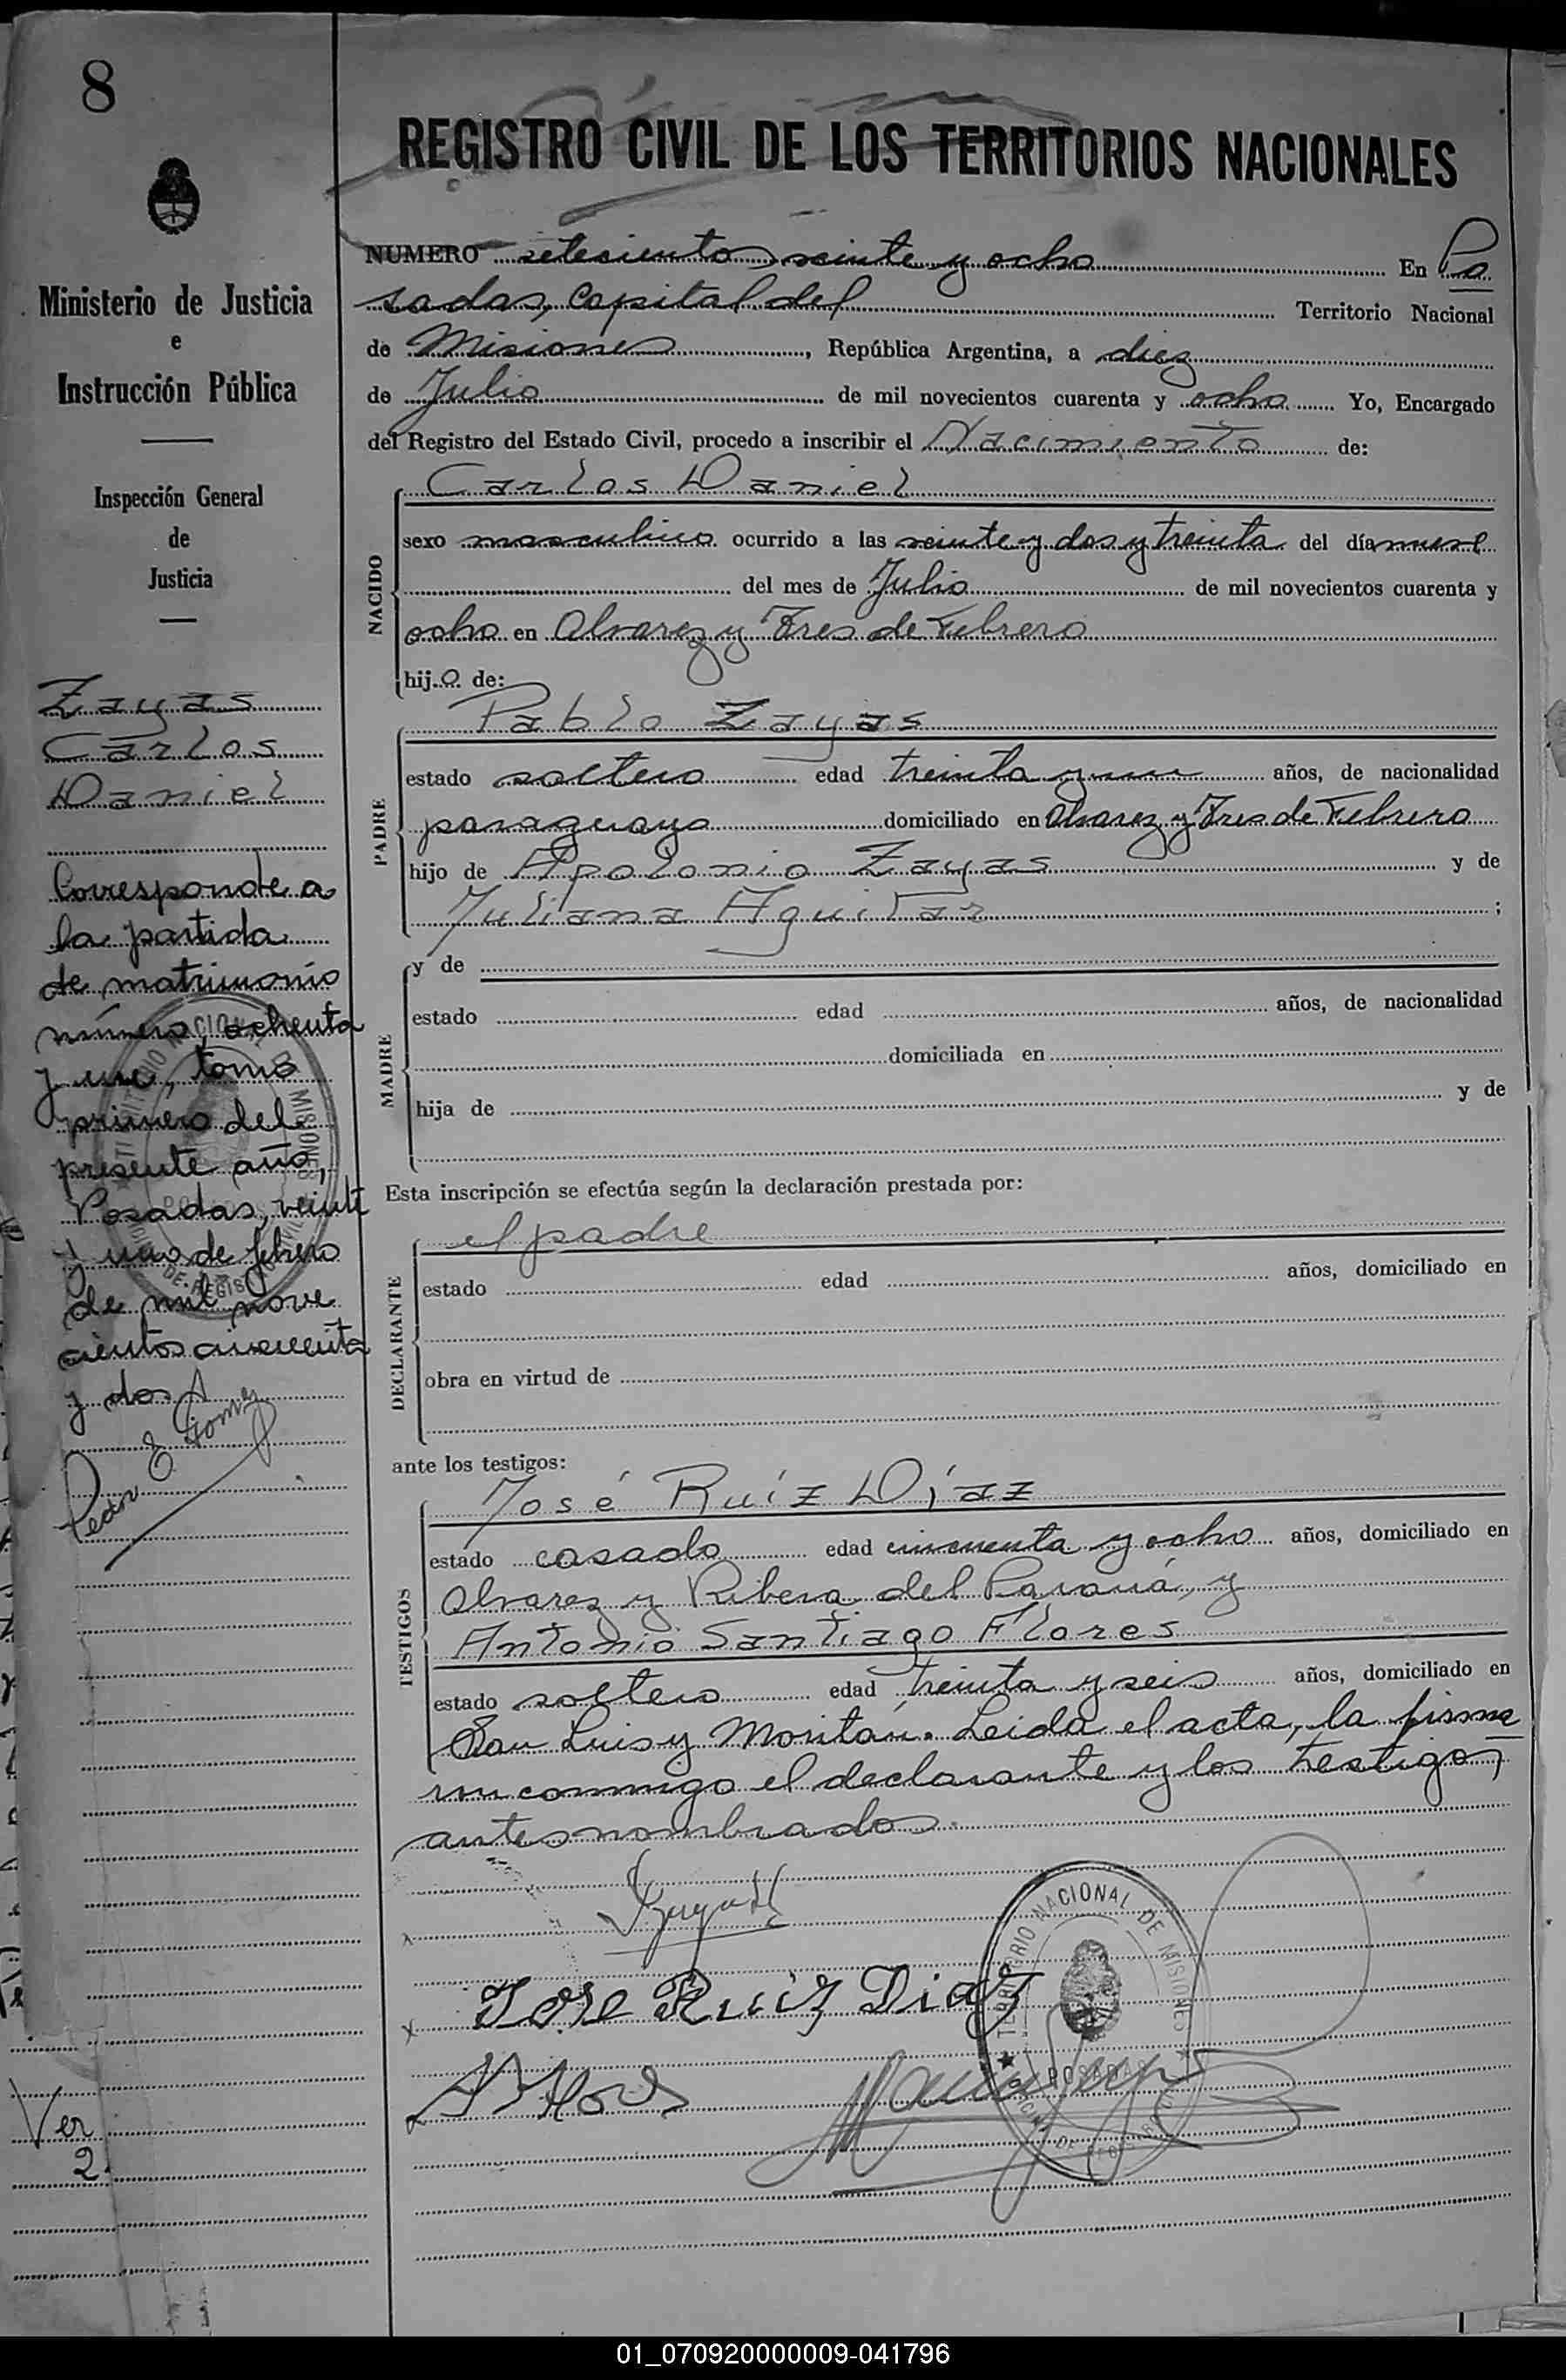 8
REGISTRO CIVIL DE LOS TERRITORIOS NACIONALES
Ministerio de Justicia
e
Instrucción Pública
Inspección General
de
Justicia
Zayas
Carlos
Daniel
Corresponde a
la partida
de matrimonio
número, ochenta
y uno, tomo
primero del
presente año,
Posadas, veinte
y uno de febrero
de mil nove
cientos cincuenta
y dos
Pedro E Gomez
Ver
2
NUMERO setecientos veinte y ocho En Po
sadas, Capital del Territorio Nacional
de Misiones, República Argentina, a diez
de Julio de mil novecientos cuarenta y ocho Yo, Encargado
del Registro del Estado Civil, procedo a inscribir el Nacimiento de:
Carlos Daniel
NACIDO
sexo masculino ocurrido a las veinte y dos y treinta del día nueve
del mes de Julio de mil novecientos cuarenta y
ocho en Alvarez y Tres de Febrero
hijo de:
Pablo Zayas
PADRE
estado soltero edad treinta y un años, de nacionalidad
paraguayo domiciliado en Alvarez y Tres de Febrero
hijo de Apolonio Zayas y de
Juliana Aguilar ;
y de
MADRE
estado edad años, de nacionalidad
domiciliada en
hija de y de
Esta inscripción se efectúa según la declaración prestada por:
el padre
DECLARANTE
estado edad años, domiciliado en
obra en virtud de
ante los testigos:
José Ruíz Díaz
TESTIGOS
estado casado edad cincuenta y ocho años, domiciliado en
Alvarez y Ribera del Paraná, y
Antonio Santiago Flores
estado soltero edad treinta y seis años, domiciliado en
San Luis y Moritán. Leida el acta, la firma
ron conmigo el declarante y los testigos
antes nombrados.
Jose Ruiz Diaz
TERRITORIO NACIONAL DE MISIONES
POSADAS
01_070920000009-041796